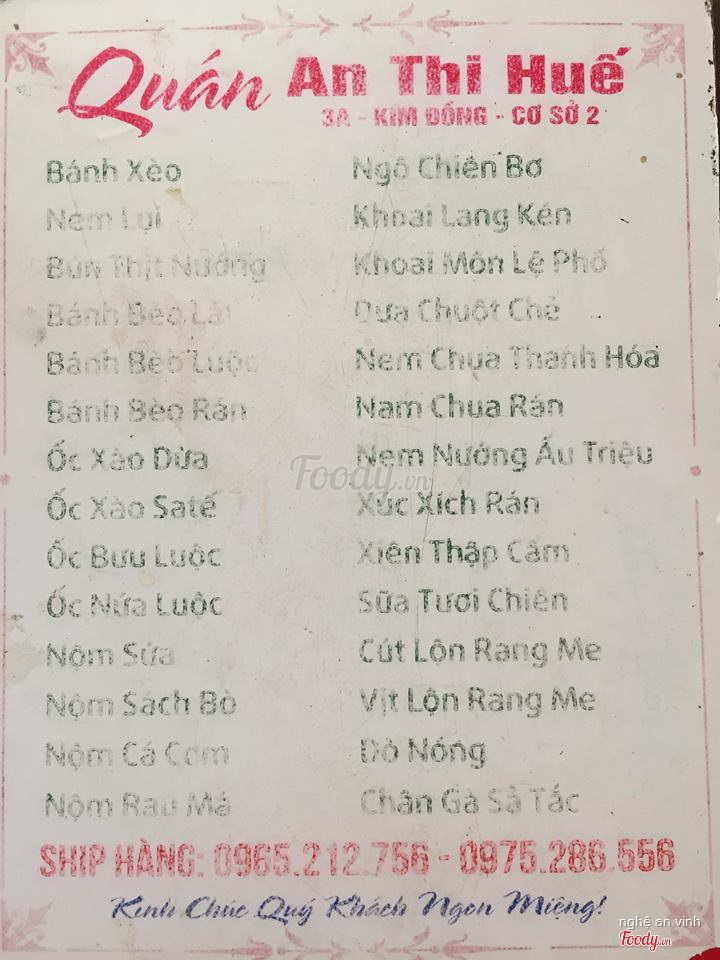 Quán An Thi Huế
3A - KIM ĐỒNG - CƠ SỞ 2
Bánh Xèo
Nem Lụi
Bún Thịt Nướng
Bánh Bèo
Bánh Bèo Luộc
Bánh Bèo Rán
Ốc Xào Dừa
Ốc Xào Satế
Ốc Bưu Luộc
Ốc Nứa Luộc
Nộm Sứa
Nộm Sách Bò
Nộm Cá Cơm
Nộm Rau Má
Ngô Chiên Bơ
Khoai Lang Kén
Khoai Môn Lệ Phố
Dưa Chuột Chẻ
Nem Chua Thanh Hóa
Nam Chua Rán
Nem Nướng Ấu Triệu
Xúc Xích Rán
Xiên Thập Cẩm
Sữa Tươi Chiên
Cút Lộn Rang Me
Vịt Lộn Rang Me
Dò Nóng
Chân Gà Sả Tắc
SHIP HÀNG: 0965.212.756 - 0975.286.556
Kính Chúc Quý Khách Ngon Miệng!
Foody.vn
nghệ an vinh
Foody.vn